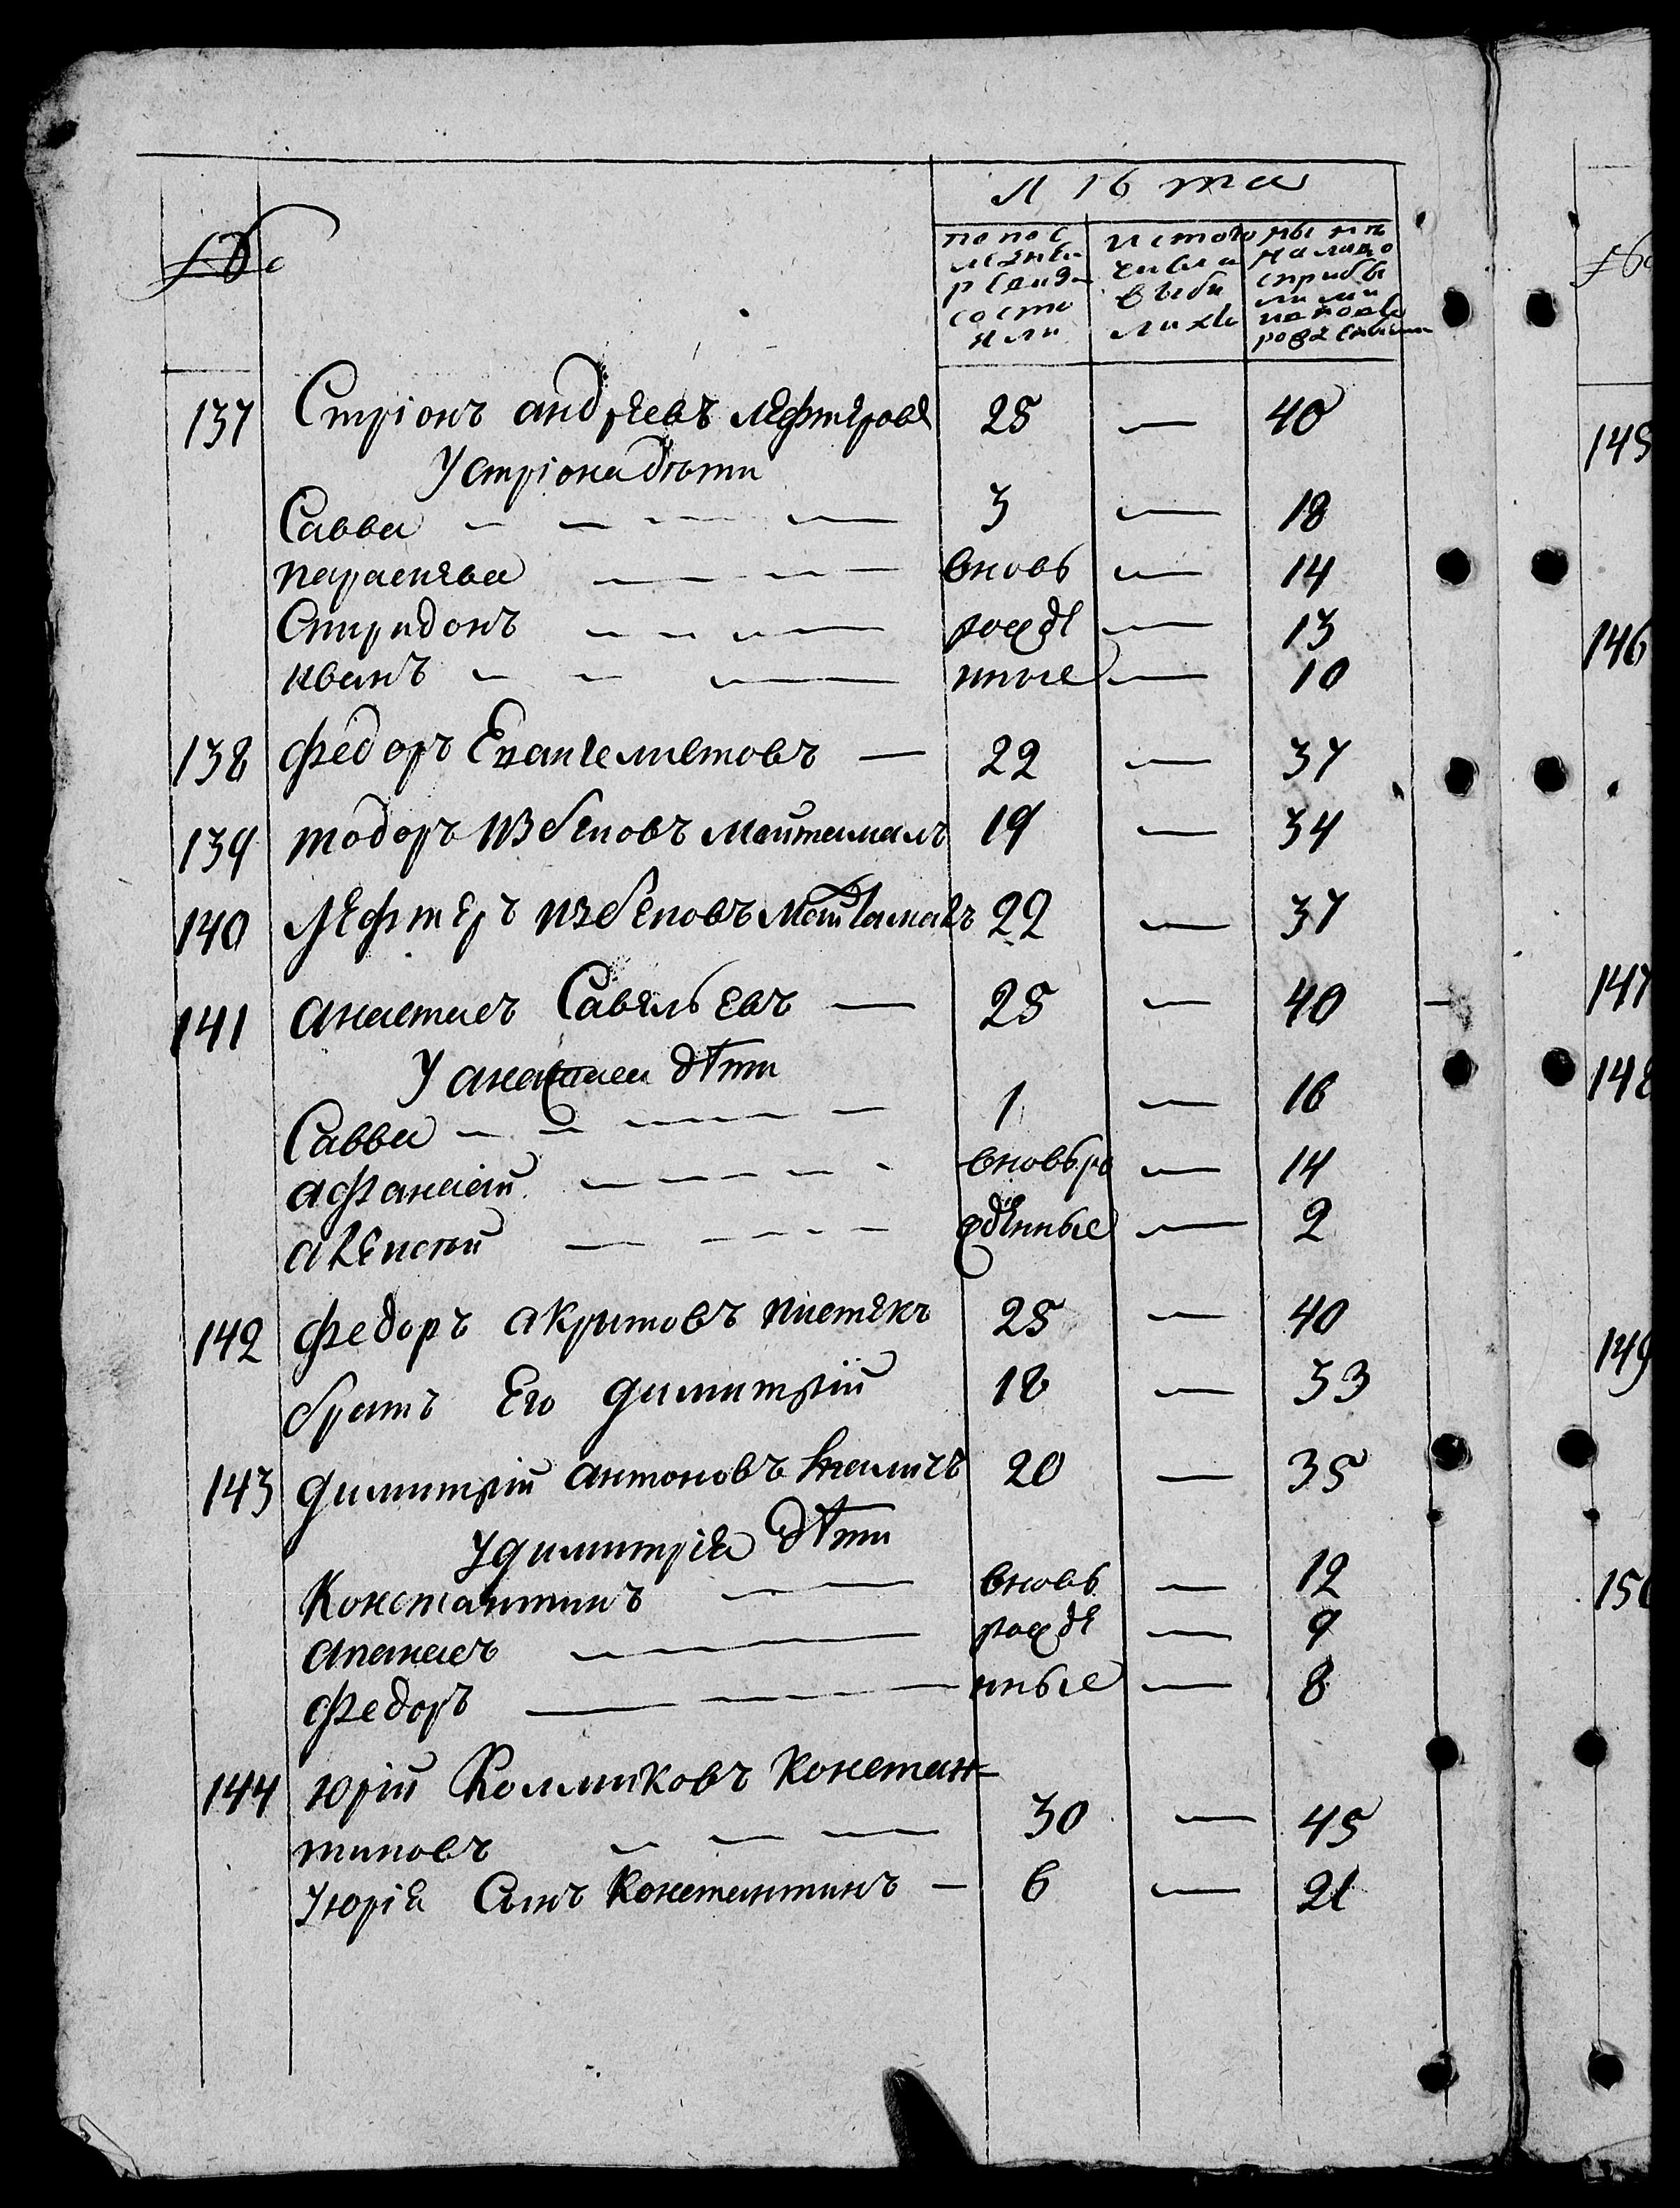 Л 1б та
№
по пос
ледней
ревизи
состо
яли
ис того
числа
выбы
ло
ныне
на лицо
с прибы
лыми
и вновь
рожденными
137 Стріонъ андреевъ лефтерова 25 — 40
У стріона дѣти
Савва — — — — 3 — 18
параскева — — — — вновь — 14
Спиридонъ — — — — рожде — 13
иванъ — — — нные — 10
138 Федоръ Евангелистовъ — 22 — 37
139 тодоръ избековъ 19 — 34
140 Лефтеръ избековъ 22 — 37
141 анастасъ Савельевъ — 25 — 40
У анастаса дѣти
Савва — — — — 1 — 16
афанасій — — — — — вновь ро — 14
алексѣй — — — — жденные — 2
142 Федоръ акритовъ 25 — 40
братъ Его димитрій 18 — 33
143 димитрій антоновъ 20 — 35
У димитрія дѣти
Константинъ — — вновь — 12
апанасъ — — — рожде — 9
Федоръ — — — нные — 8
144 юрій Констан-
тиновъ — — — 30 — 45
У юрія Сынъ Константинъ — 6 — 21
№
145
146
147
148
149
150